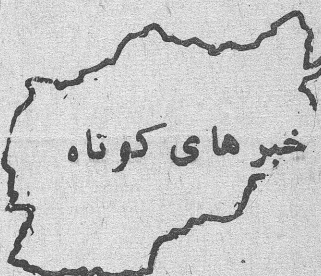 خبر های کوتاه